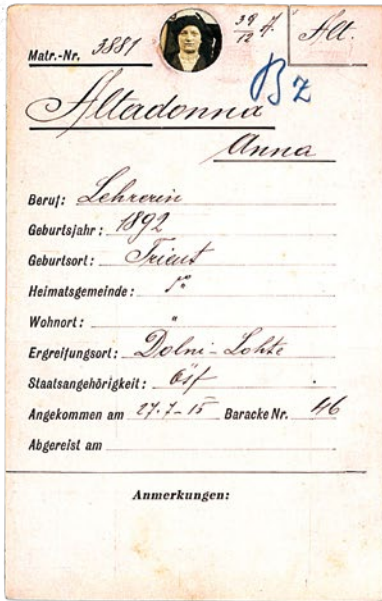 Matr.-Nr. 3881 39/12 A. Alt.
Bz
Altadonna
Anna
Beruf: Lehrerin
Geburtsjahr: 1892
Geburtsort: Trient
Heimatsgemeinde:
Wohnort: "
Ergreifungsort: Dolni-Lohte
Staatsangehörigkeit:
Angekommen am 27.7-15 Baracke Nr. 46
Abgereist am
Anmerkungen: